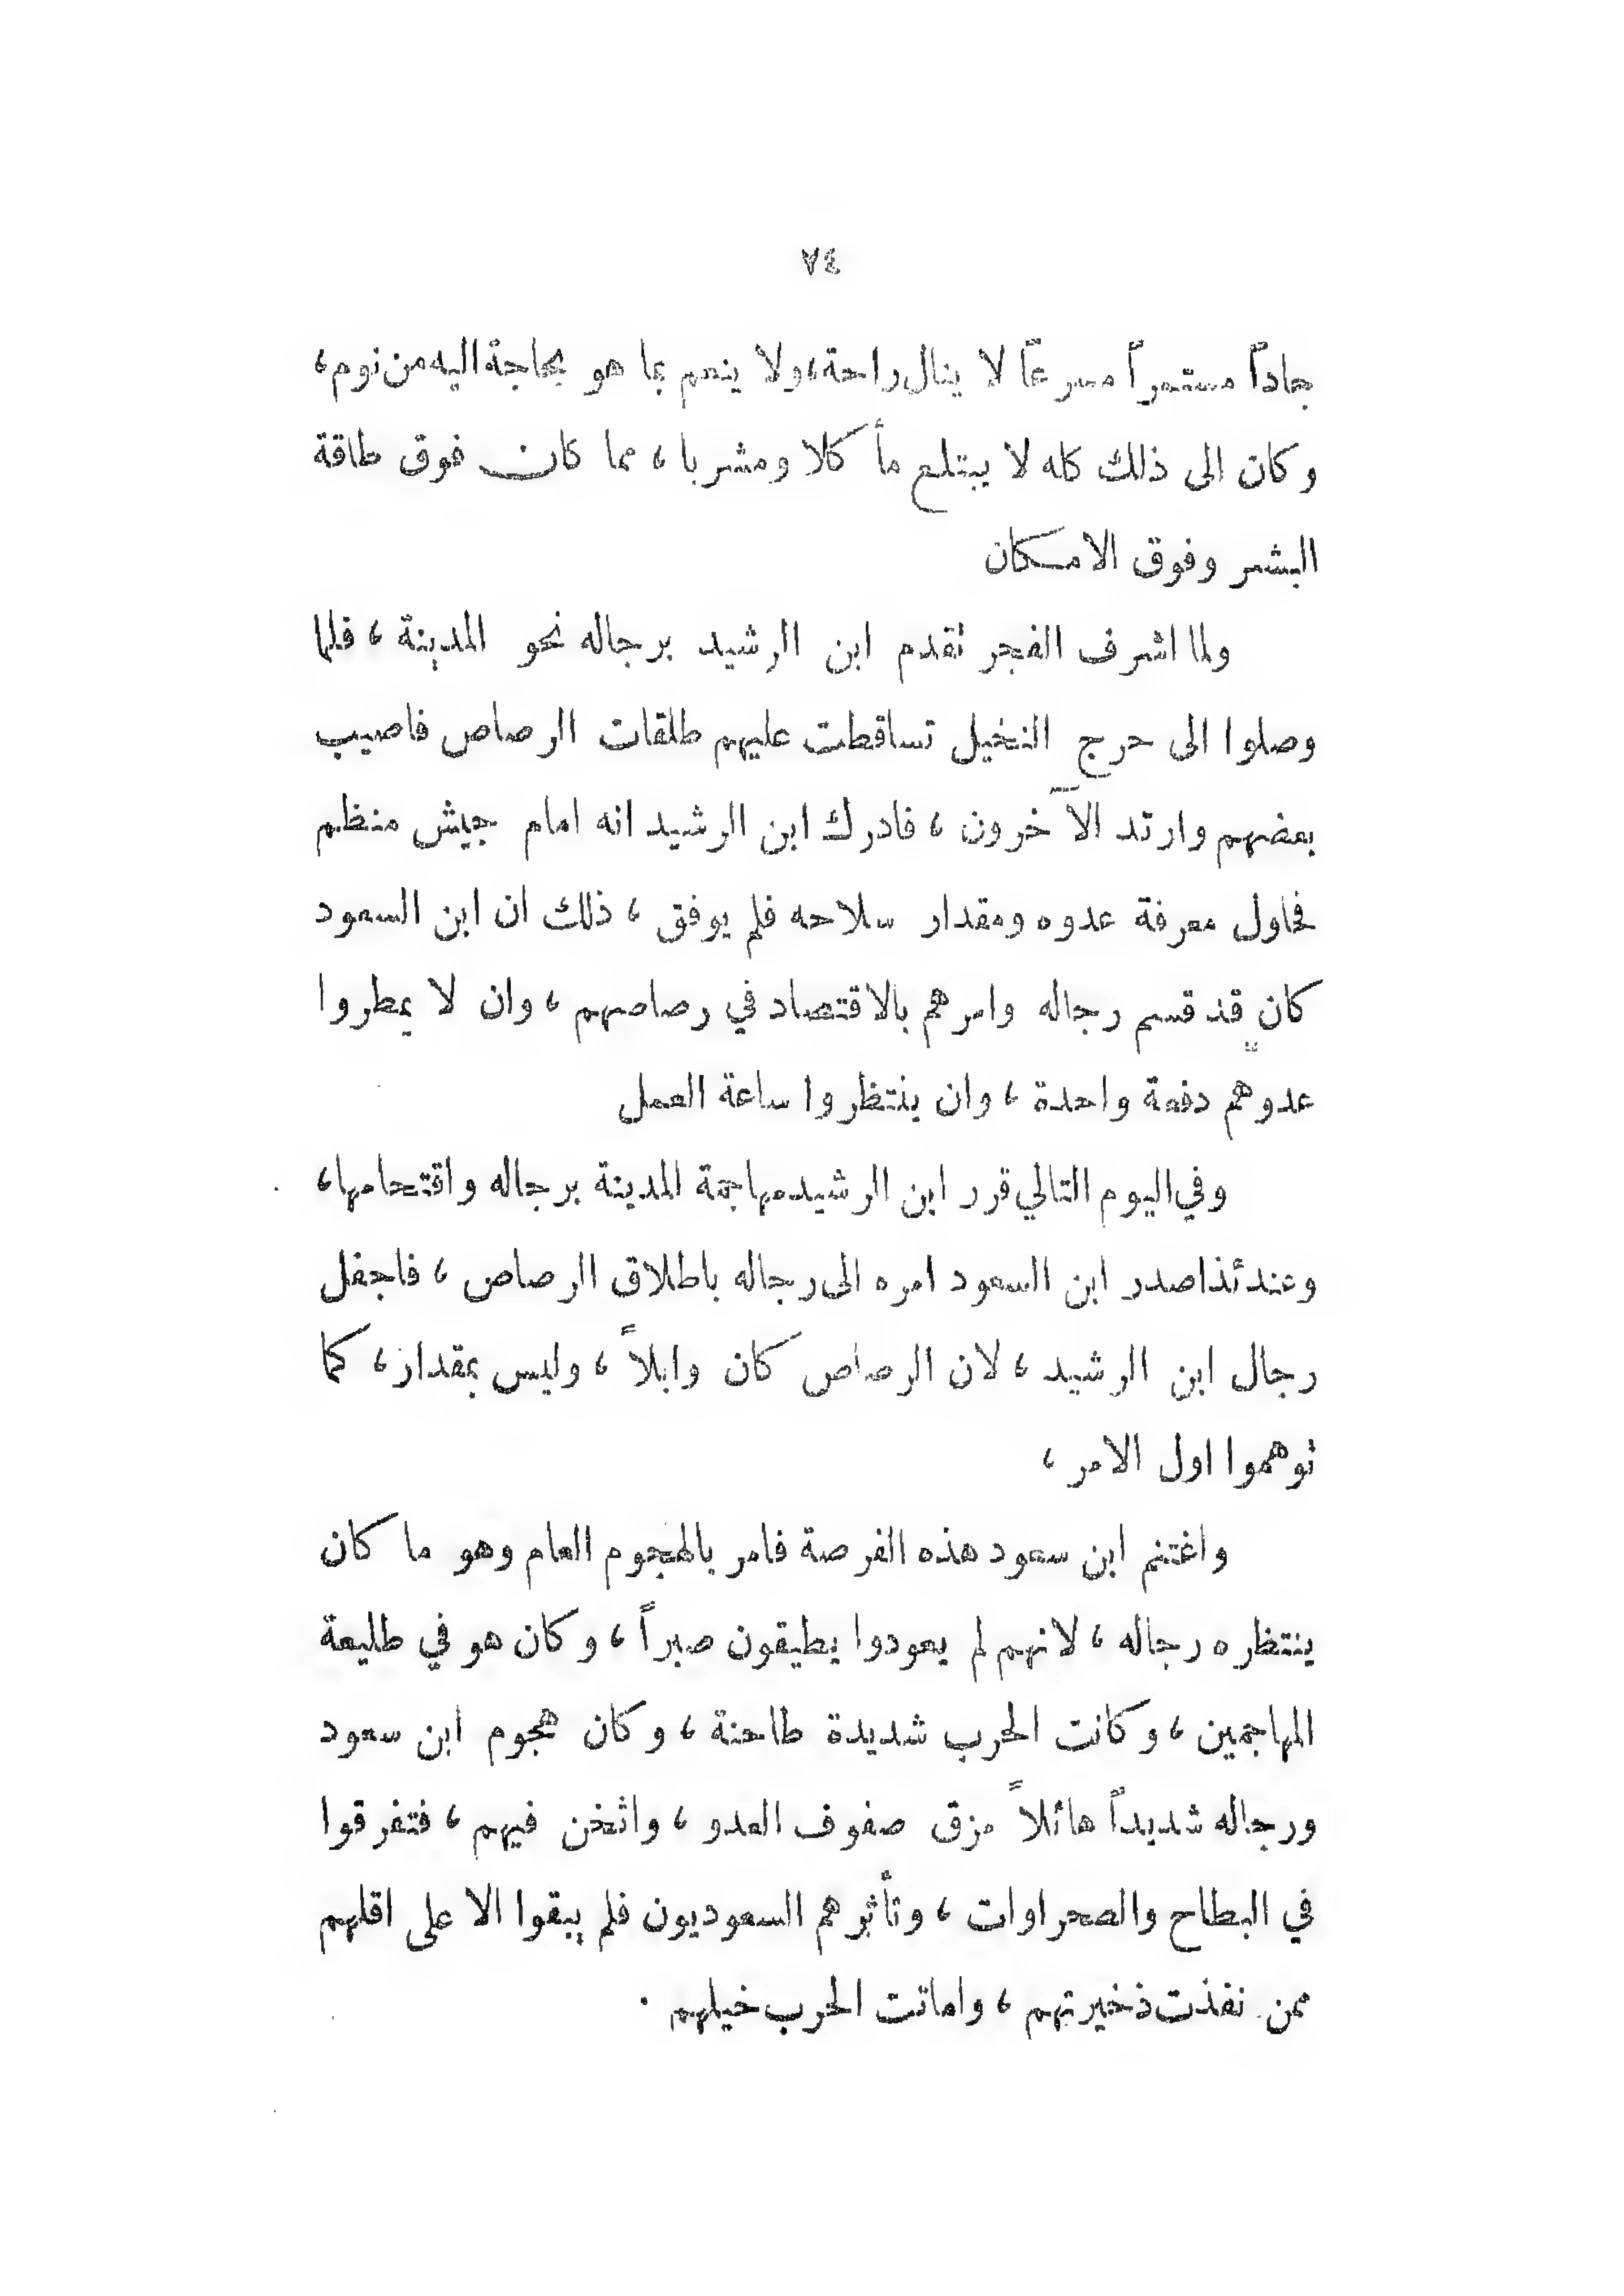 ٧٤
جاداً مستمراً مسرعاً لا ينال راحة، ولا ينعم بما هو بحاجة اليه من نوم،
وكان الى ذلك كله لا يبتلع مأكلا ومشربا، مما كان فوق طاقة
البشر وفوق الامكان
ولما اشرف الفجر تقدم ابن الرشيد برجاله نحو المدينة، فلما
وصلوا الى حرج النخيل تساقطت عليهم طلقات الرصاص فاصيب
بعضهم وارتد الآخرون، فادرك ابن الرشيد انه امام جيش منظم
فحاول معرفة عدوه ومقدار سلاحه فلم يوفق، ذلك ان ابن السعود
كان قد قسم رجاله وامرهم بالاقتصاد في رصاصهم، وان لا يمطروا
عدوهم دفعة واحدة، وان ينتظروا ساعة العمل
وفي اليوم التالي قرر ابن الرشيد مهاجمة المدينة برجاله واقتحامها،
وعندئذ اصدر ابن السعود امره الى رجاله باطلاق الرصاص، فاجفل
رجال ابن الرشيد، لان الرصاص كان وابلاً، وليس بمقدار، كما
توهموا اول الامر،
واغتنم ابن سعود هذه الفرصة فامر بالهجوم العام وهو ما كان
ينتظره رجاله، لانهم لم يعودوا يطيقون صبراً، وكان هو في طليعة
المهاجمين، وكانت الحرب شديدة طاحنة، وكان هجوم ابن سعود
ورجاله شديداً هائلاً مزق صفوف العدو، واثخن فيهم، فتفرقوا
في البطاح والصحراوات، وتأثرهم السعوديون فلم يبقوا الا على اقلهم
ممن نفذت ذخيرتهم، واماتت الحرب خيلهم.